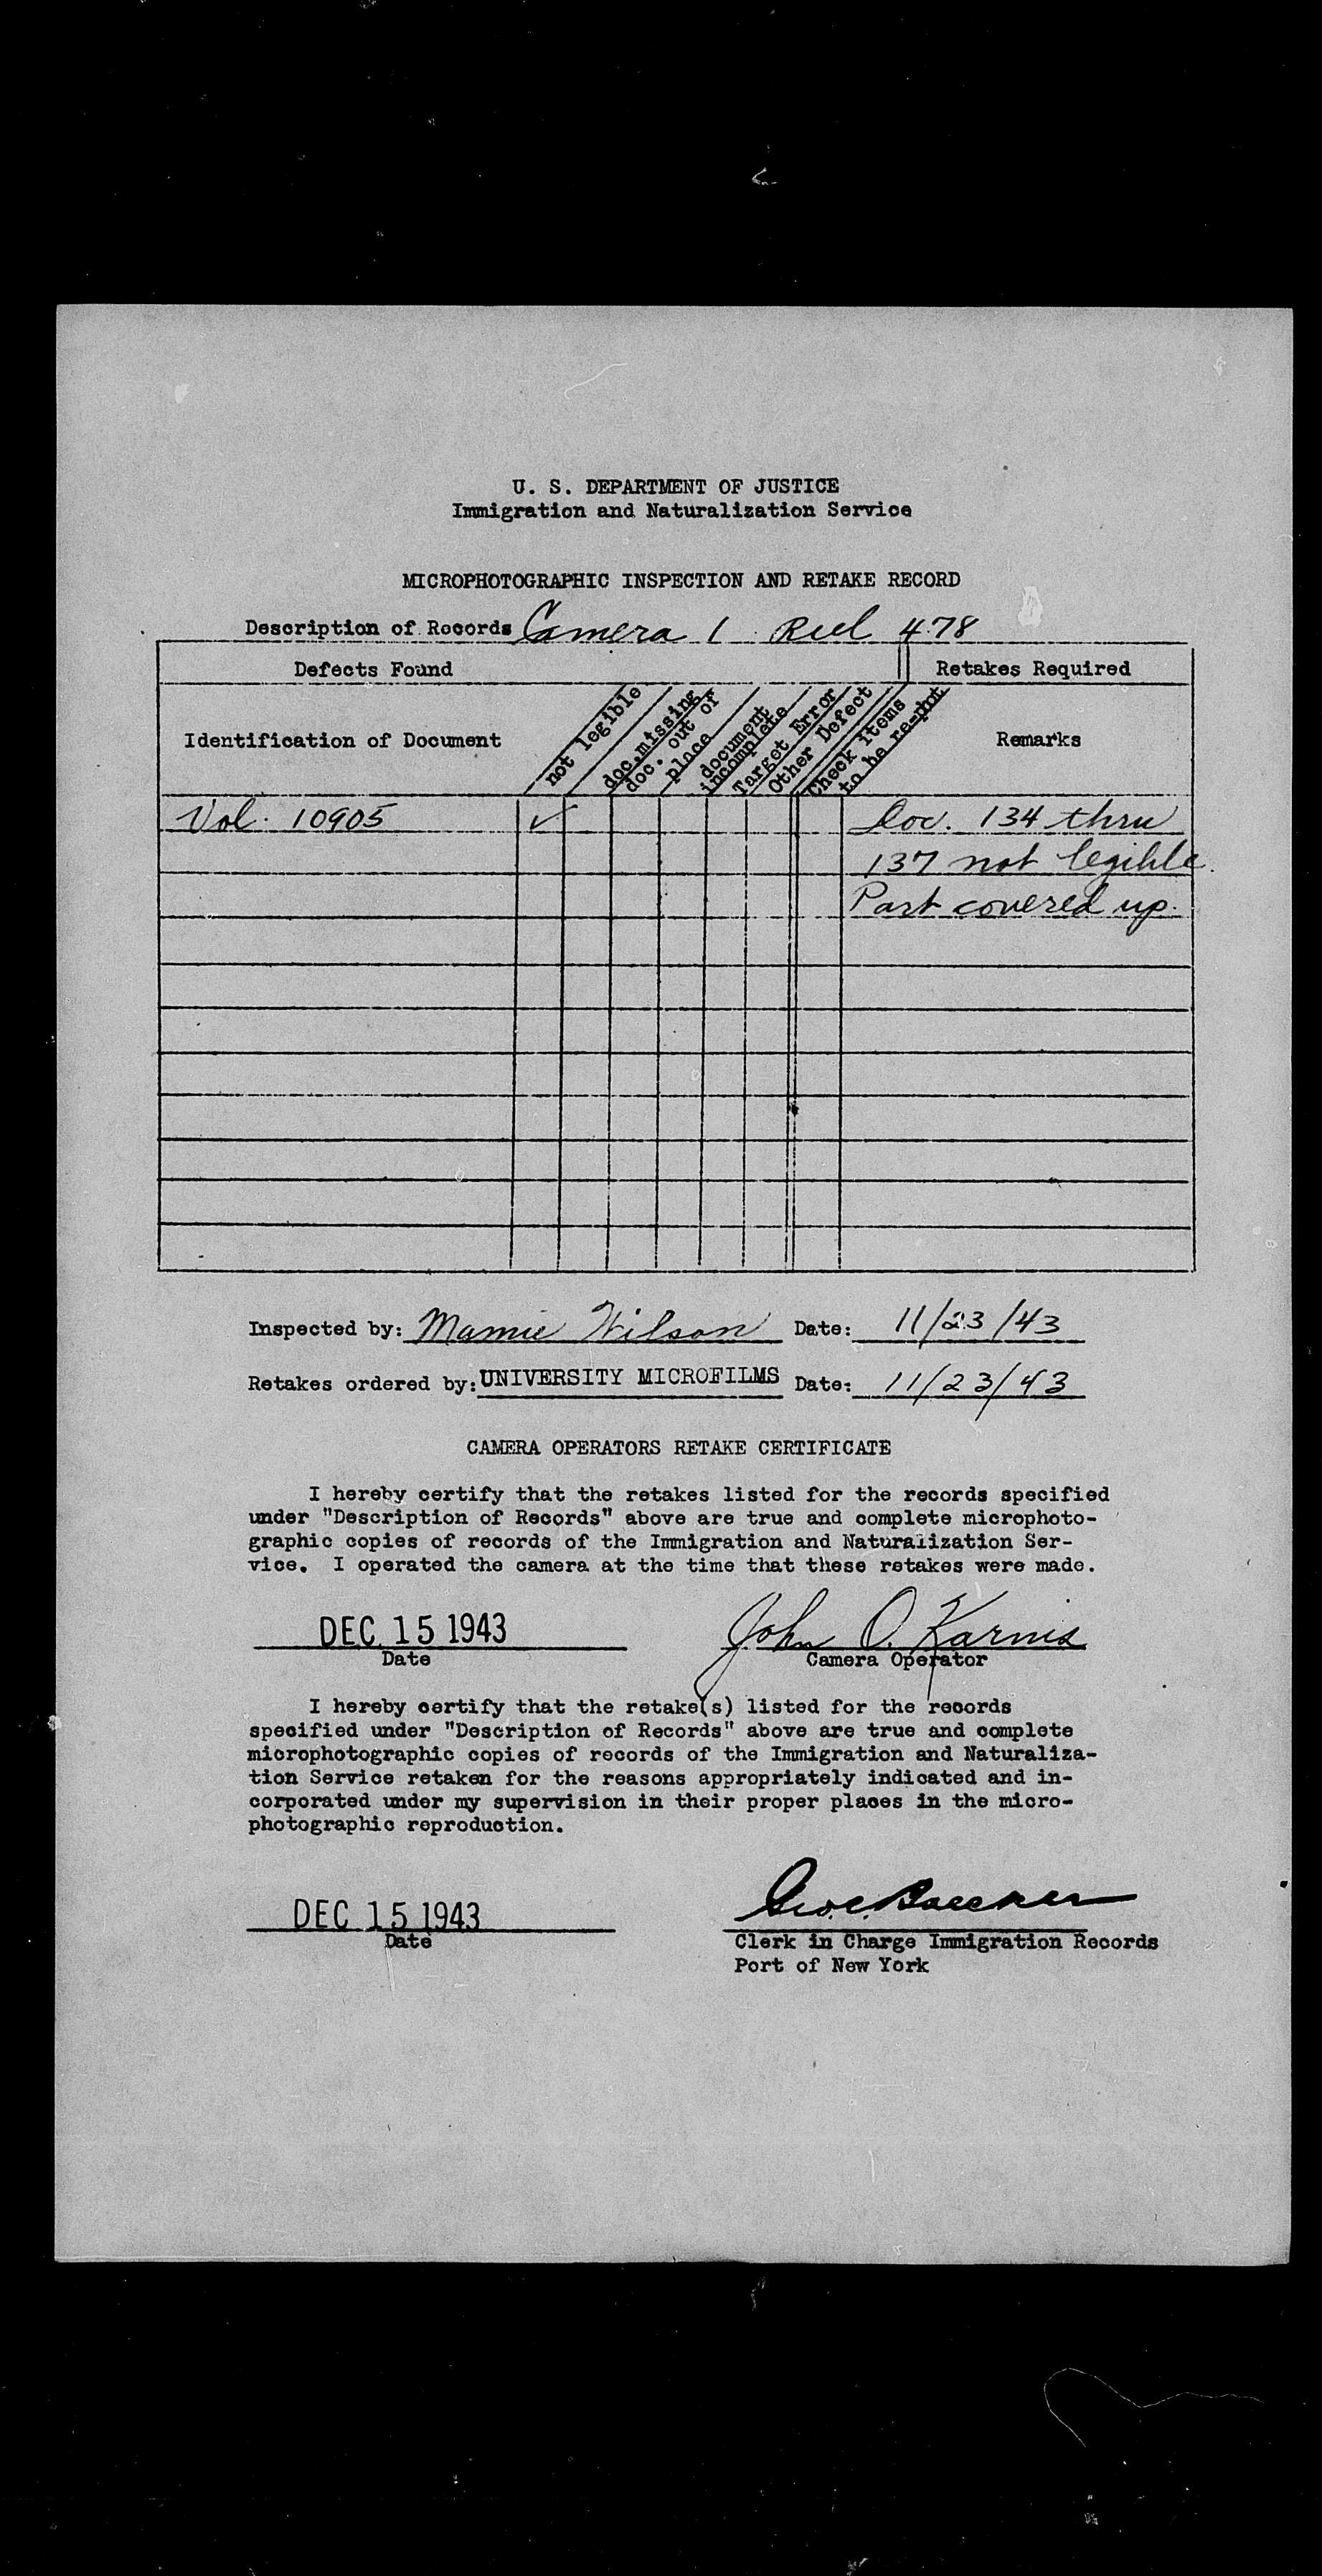 U. S. DEPARTMENT OF JUSTICE
Immigration and Naturalization Service
MICROPHOTOGRAPHIC INSPECTION AND RETAKE RECORD
Description of Records Camera 1 Reel 478
Defects Found Retakes Required
Identification of Document not legible doc. missing doc. out of place document incomplete Target Error Other Defect Check items to be re-phot Remarks
Vol. 10905 ✓ Doc. 134 thru
137 not legible.
Part covered up.
Inspected by: Mamie Wilson Date: 11/23/43
Retakes ordered by: UNIVERSITY MICROFILMS Date: 11/23/43
CAMERA OPERATORS RETAKE CERTIFICATE
I hereby certify that the retakes listed for the records specified
under "Description of Records" above are true and complete microphoto-
graphic copies of records of the Immigration and Naturalization Ser-
vice. I operated the camera at the time that these retakes were made.
DEC 15 1943 John O. Karnis
Date Camera Operator
I hereby certify that the retake(s) listed for the records
specified under "Description of Records" above are true and complete
microphotographic copies of records of the Immigration and Naturaliza-
tion Service retaken for the reasons appropriately indicated and in-
corporated under my supervision in their proper places in the micro-
photographic reproduction.
DEC 15 1943
Date Clerk in Charge Immigration Records
Port of New York